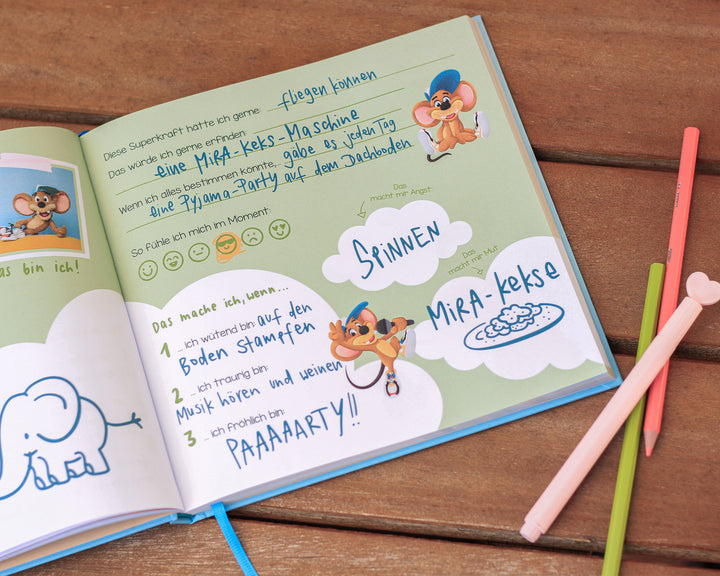 as bin ich!
Diese Superkraft hätte ich gerne: fliegen können
Das würde ich gerne erfinden:
eine MiRA-Keks-Maschine
Wenn ich alles bestimmen könnte, gäbe es jeden Tag
eine Pyjama-Party auf dem Dachboden
So fühle ich mich im Moment:
Das
macht mir Angst:
SPiNNEN
Das
macht mir Mut:
MiRA-Kekse
Das mache ich, wenn...
1 ... ich wütend bin: auf den
Boden stampfen
2 ... ich traurig bin:
Musik hören und weinen
3 ... ich fröhlich bin:
PAAAAARTY!!